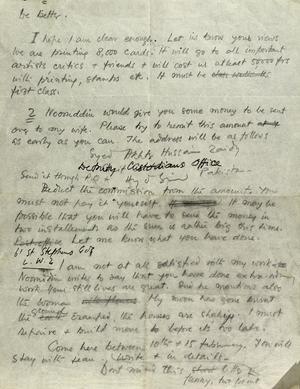 be better.
I hope I am clear enough. Let us know your views
We are printing 8,000 cards. It will go to all important
artists critics & friends & will cost us atleast 50000 frs
with printing, stamps etc. It must be
first class.
2 Nooruddin would give you some money to be sent
over to my wife. Please try to remit this amount
as early as you can. The address will be as follows
Syed Hussain Zaidi
Custodians Office
Pakistan
Send it through P.O.
Deduct the commission from the amount. You
must not pay it yourself. It may be
possible that you will have to send the money in
two installments as the sum is rather big this time.
Let me know what you have done.
61 St Stephens Gdns
I am not at all satisfied with my work
Nooruddin writes to say that you have done extra
work your still lives are great. But he mentions also
the woman My moon has gone burst
the the houses are shakey. I must
repaire & build more before its too late.
Come here between 10th & 15 february. You will
stay with Write & in details.
Dont mind this